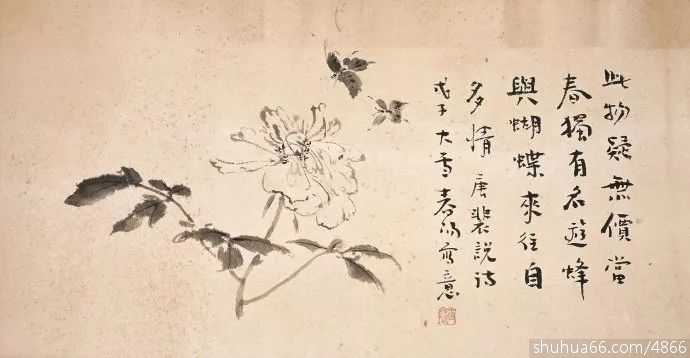 此物疑無價當
春獨有名遊蜂
與蝴蝶來往自
多情 唐裴說詩
戊子大雪寫意
shuhua66.com/4866